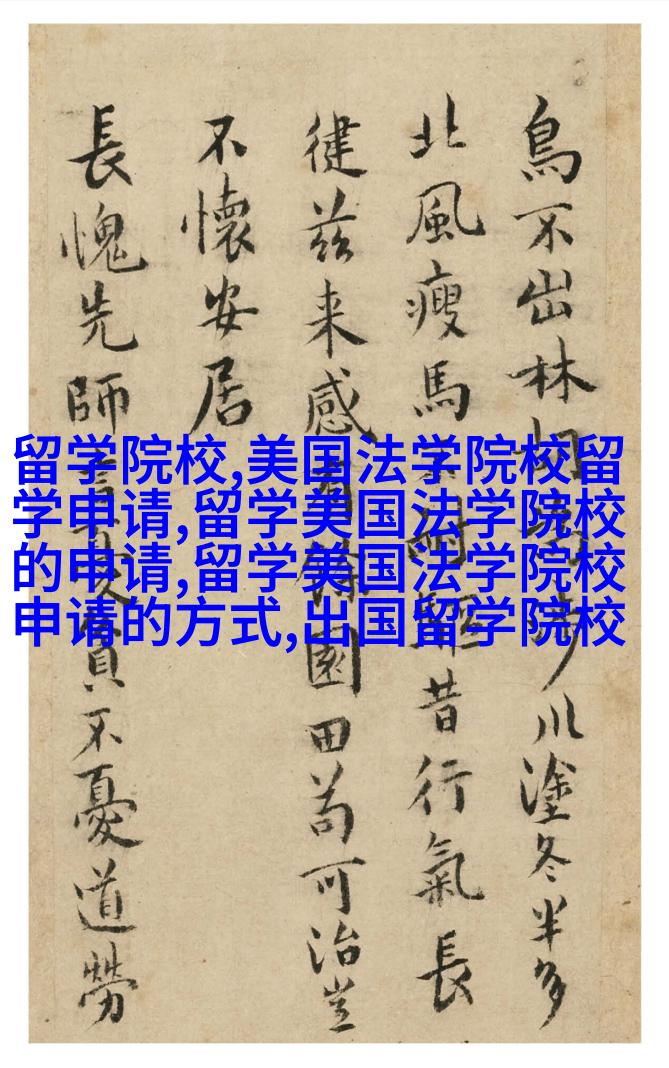 留学院校,美国法学院校留
学申请,留学美国法学院校
的申请,留学美国法学院校
申请的方式,出国留学院校
鳥不出林川塗冬半多
北風瘦馬耐昔行氣長
徤茲来感餘園田苟可治豈
不懷安居
長愧先師貧不憂道勞